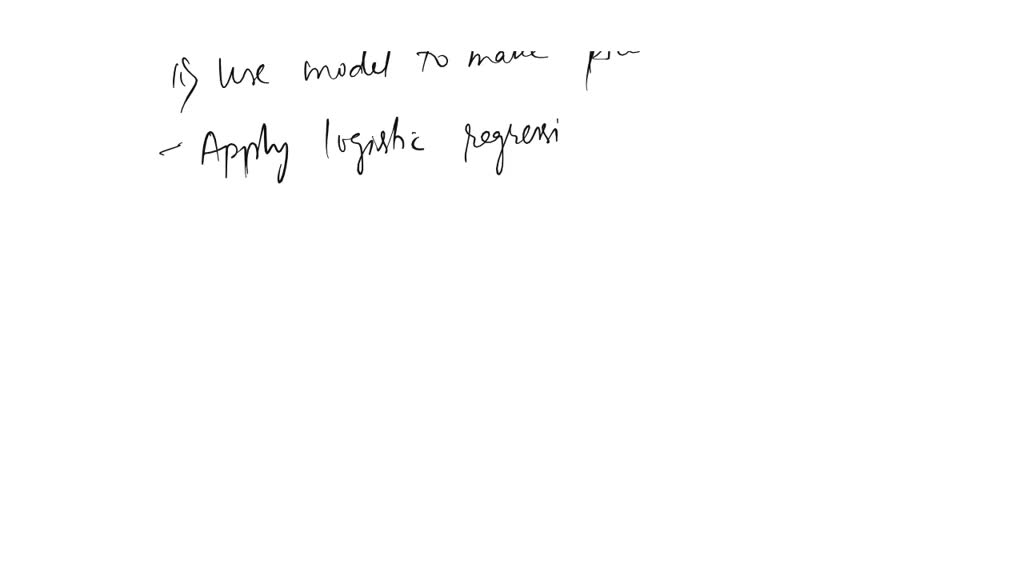 Use model to make
- Apply logistic regressi